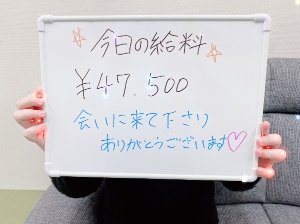 ☆今日の給料☆
¥47.500
会いに来て下さり
ありがとうございます♡